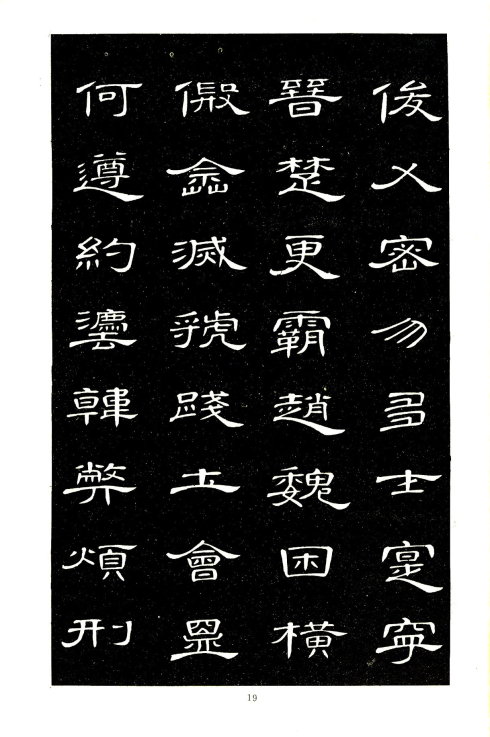 俊乂密勿多士寔寧
晉楚更霸趙魏困橫
假途滅虢踐土會盟
何遵約法韓弊煩刑
19